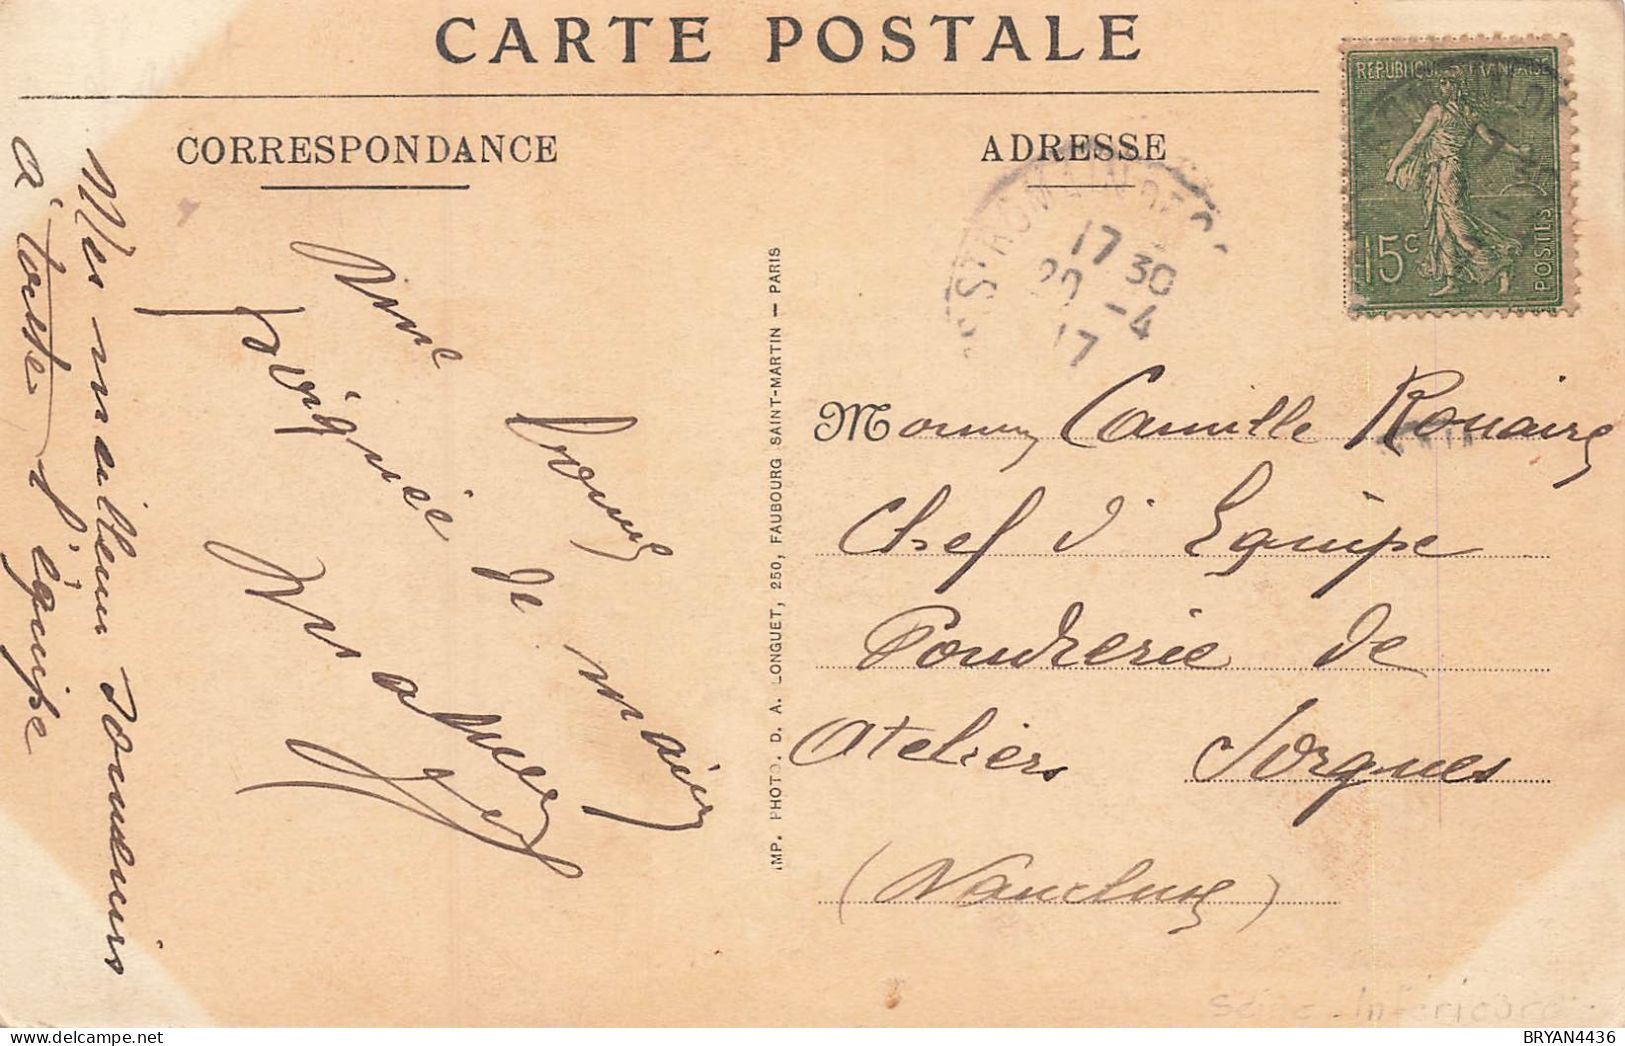 CARTE POSTALE
CORRESPONDANCE
ADRESSE
REPUBLIQUE FRANÇAISE
15c
POSTES
ST ROMAIN DE CO
17 30
20 -4
17
Mes meilleurs souvenirs
à toute l'équipe
Une bonne
poignée de main
IMP. PHOTO. D. A. LONGUET, 250, FAUBOURG SAINT-MARTIN — PARIS
Monsieur Camille Rouaire
Chef d'Equipe
Poudrerie de
Ateliers Sorgues
(Vaucluse)
Seine Inférieure
BRYAN4436